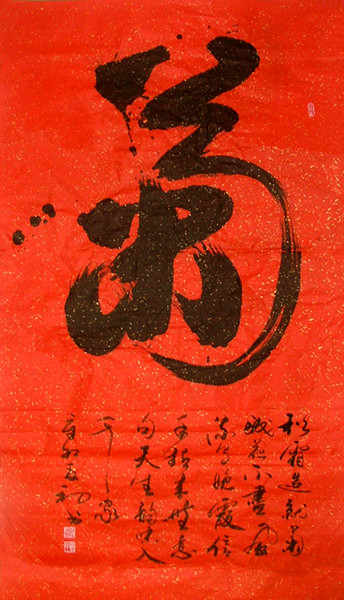 菊
秋霜造就菊
城花不盡風
流写晚霞信
手拈来無意
句天生韵味入
千家